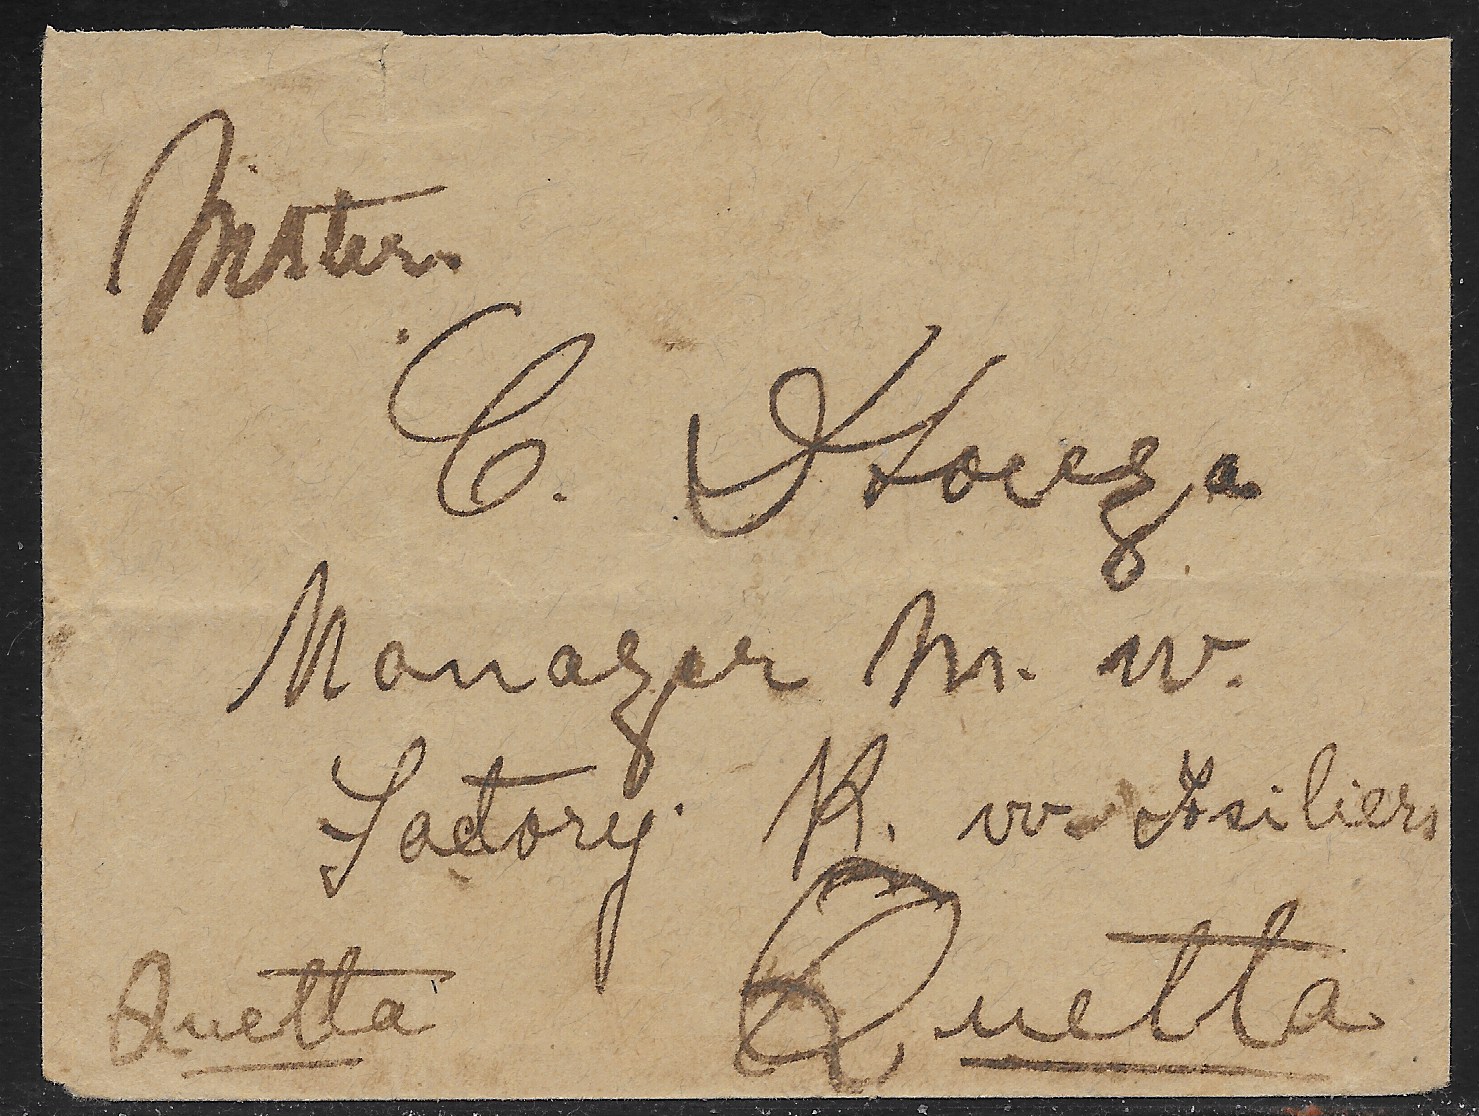 Mister.
C.
Manager M. W.
Factory. R. W. Fsiliers
Quetta Quetta